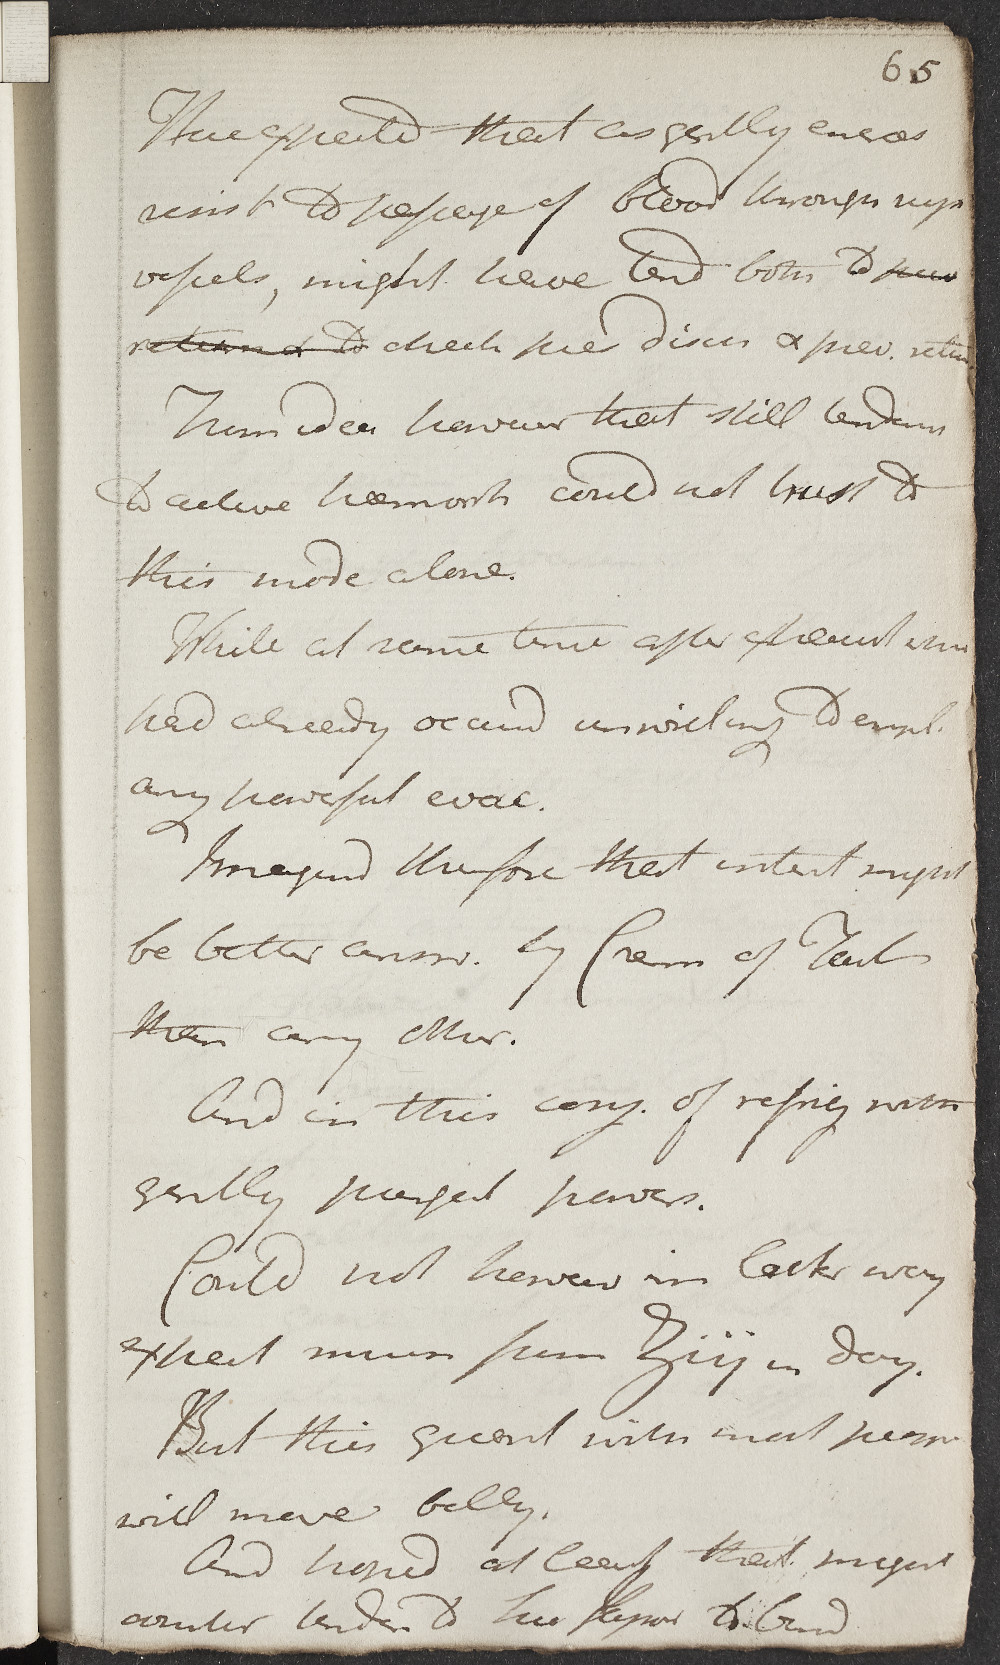 65
Thus expected that as gently encreas
resist to passage of blood through
vessels, might have tend both to
return & to check pres discu & prev. return
From idea however that still tendenc
to active hæmorrh could not trust to
this mode alone.
While at same time after
had already occurrd unwilling to empl.
any powerful evac.
Imagind therefore that intent might
be better answr. by Cream of Tart
than any other.
And in this conj. of refrig with
gently purgat powers.
Could not however in latter way
expect much from ʒiij in day.
But this quant with most
will move belly.
And hoped at least that might
counter tenden to